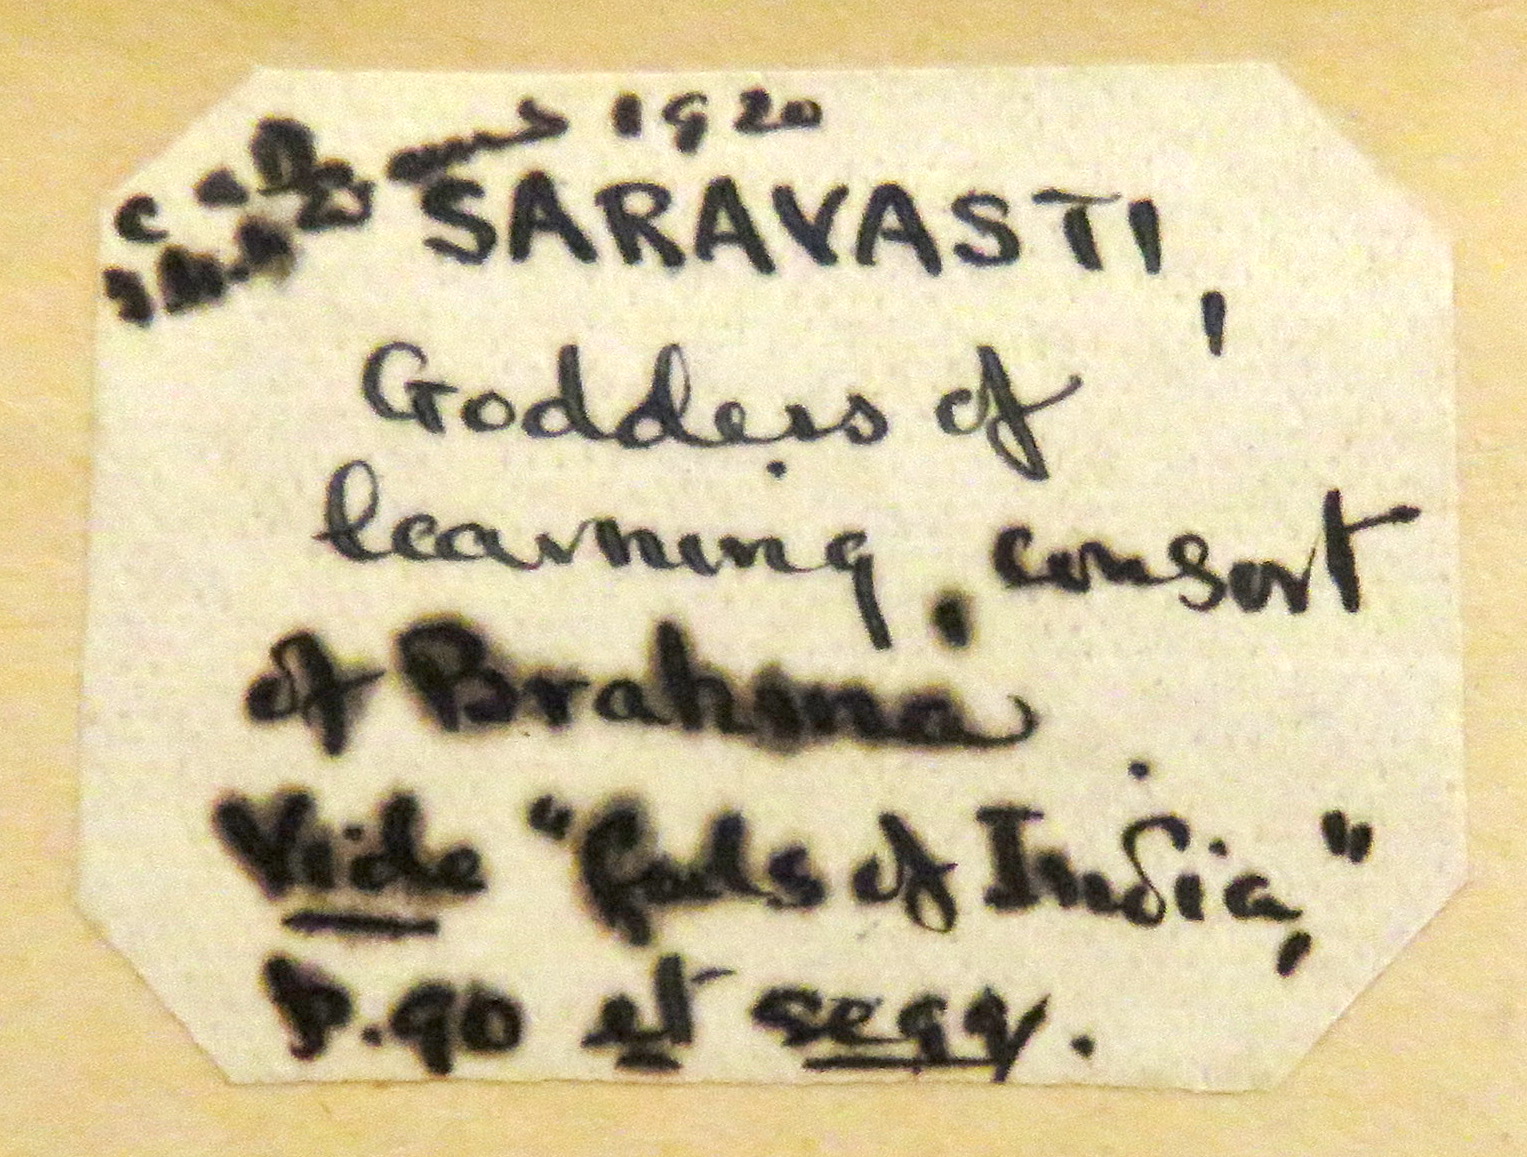 1920
SARAVASTI,
Goddess of
learning, consort
of Brahma
Vide "Gods of India,"
P. 90 et seqq.